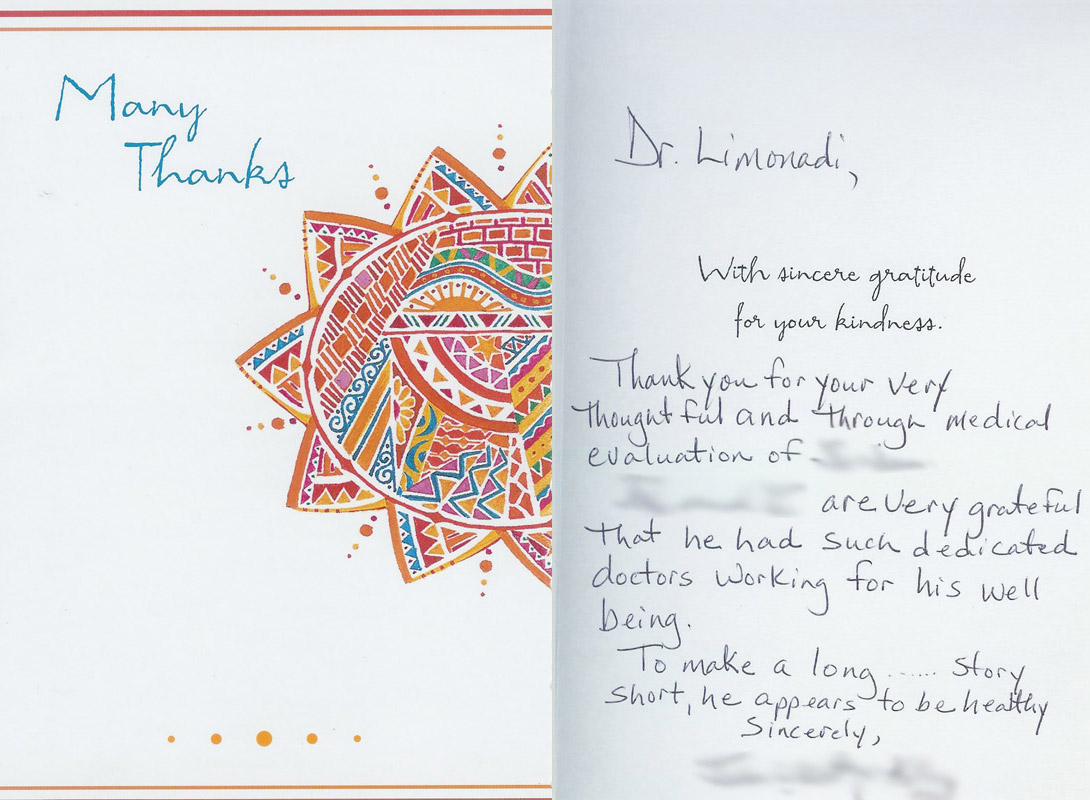 Many
Thanks
Dr. Limonadi,
With sincere gratitude
for your kindness.
Thank you for your very
thoughtful and through medical
evaluation of
are very grateful
that he had such dedicated
doctors working for his well
being.
To make a long ...... story
short, he appears to be healthy
Sincerely,